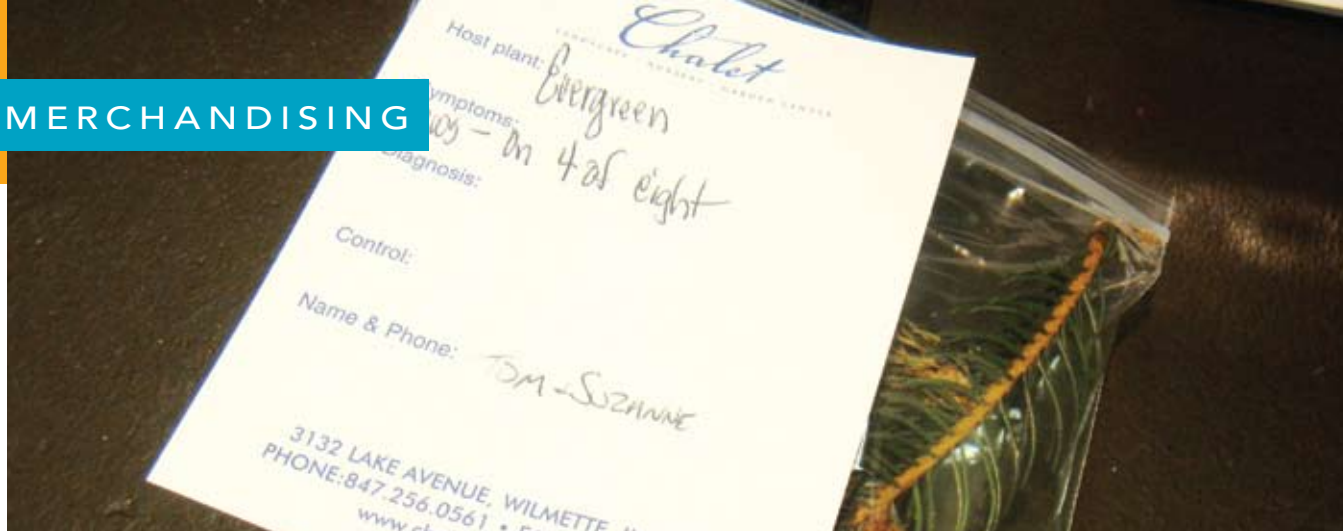 MERCHANDISING
Chalet
LANDSCAPE · NURSERY · GARDEN CENTER
Host plant: Evergreen
ymptoms:
– on 4 of eight
Diagnosis:
Control:
Name & Phone: TOM - SUZANNE
3132 LAKE AVENUE, WILMETTE,
PHONE:847.256.0561 •
www.ch